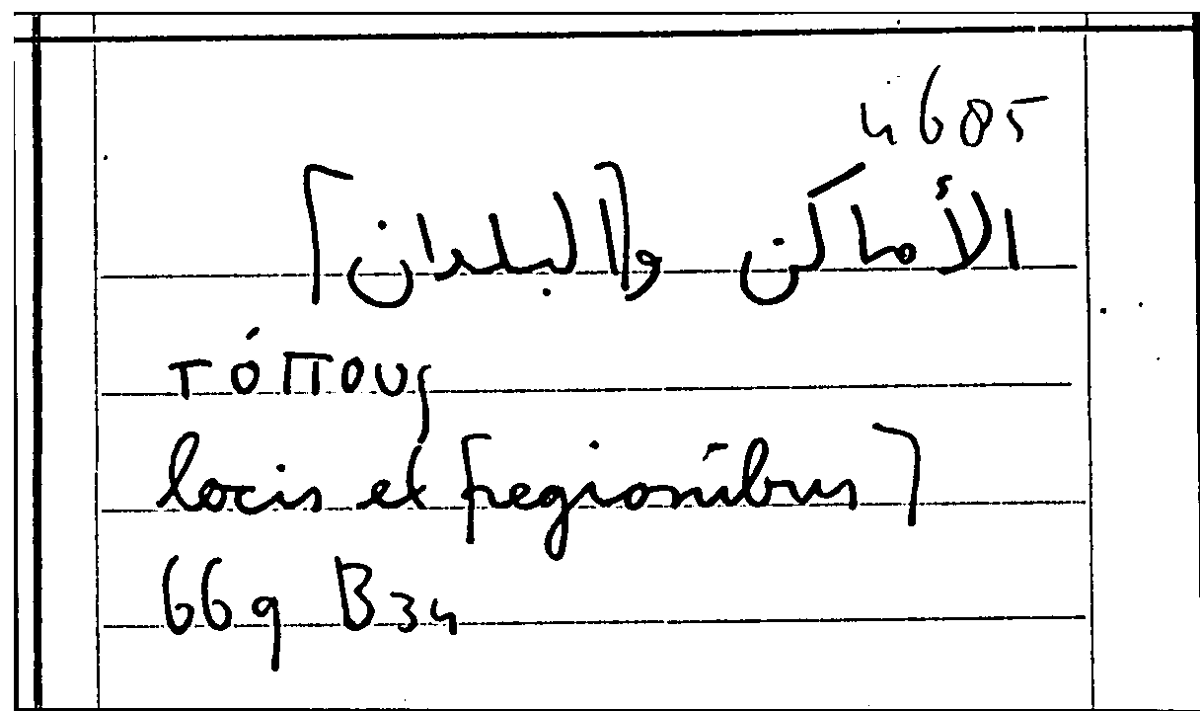 4605
الأماكن و[البلدان]
τόπους
locis et [regionibus]
669 B34